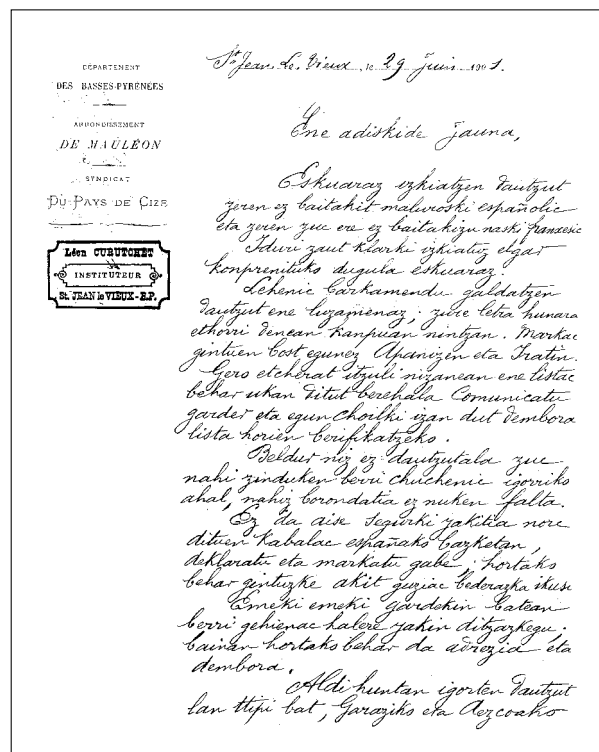 DÉPARTEMENT
DES BASSES-PYRÉNÉES
ARRONDISSEMENT
DE MAULÉON
SYNDICAT
DU PAYS DE CIZE
Léon CURUTCHET
INSTITUTEUR
St. JEAN le VIEUX - B.P.
St Jean Le Vieux, le 29 Juin 1901.
Ene adiskide jauna,
Eskuaraz izkiatzen dautzut
zeren ez baitakit maluroski españolic
eta zeren zuc ere ez baitakizu naski francesic
Iduri zaut klarki izkiatuz elgar
konprenituko dugula eskuaraz.
Lehenic barkamendu galdatzen
dautzut ene luzamenaz; zure letra hunara
ethorri denean kanpuan nintzan. Markac
gintuen bost egunez Apanizen eta Iratin.
Gero etcherat itzuli nizanean ene listac
behar ukan ditut berehala comunicatu
garder eta egun choilki izan dut dembora
lista horien berifikatzeko.
Beldur niz ez dautzutala zuc
nahi zinduken berri chuchenic igorriko
ahal, nahiz borondatia ez nuken falta.
Ez da aise segurki jakitia norc
dituen kabalac españako bazketan,
deklaratu eta markatu gabe; hortako
behar gintuzke akit guziac bederazka ikusi
Emeki emeki gardekin batean
berri gehienac halere jakin ditzazkegu;
bainan hortako behar da adrezia eta
dembora.
Aldi huntan igorten dautzut
lan ttipi bat, Garaziko eta Aezcoako